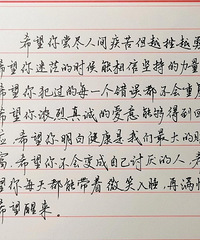 希望你尝尽人间疾苦但越挫越勇
希望你迷茫的时候能相信坚持的力量
希望你犯过的每一个错误都不会重
你浓烈真诚的爱意能够得到回
应,希望你明白健康是我们最大的财
富,希望你不会变成自己讨厌的人,希
望你每天都能带着微笑入睡,再满怀
希望醒来。